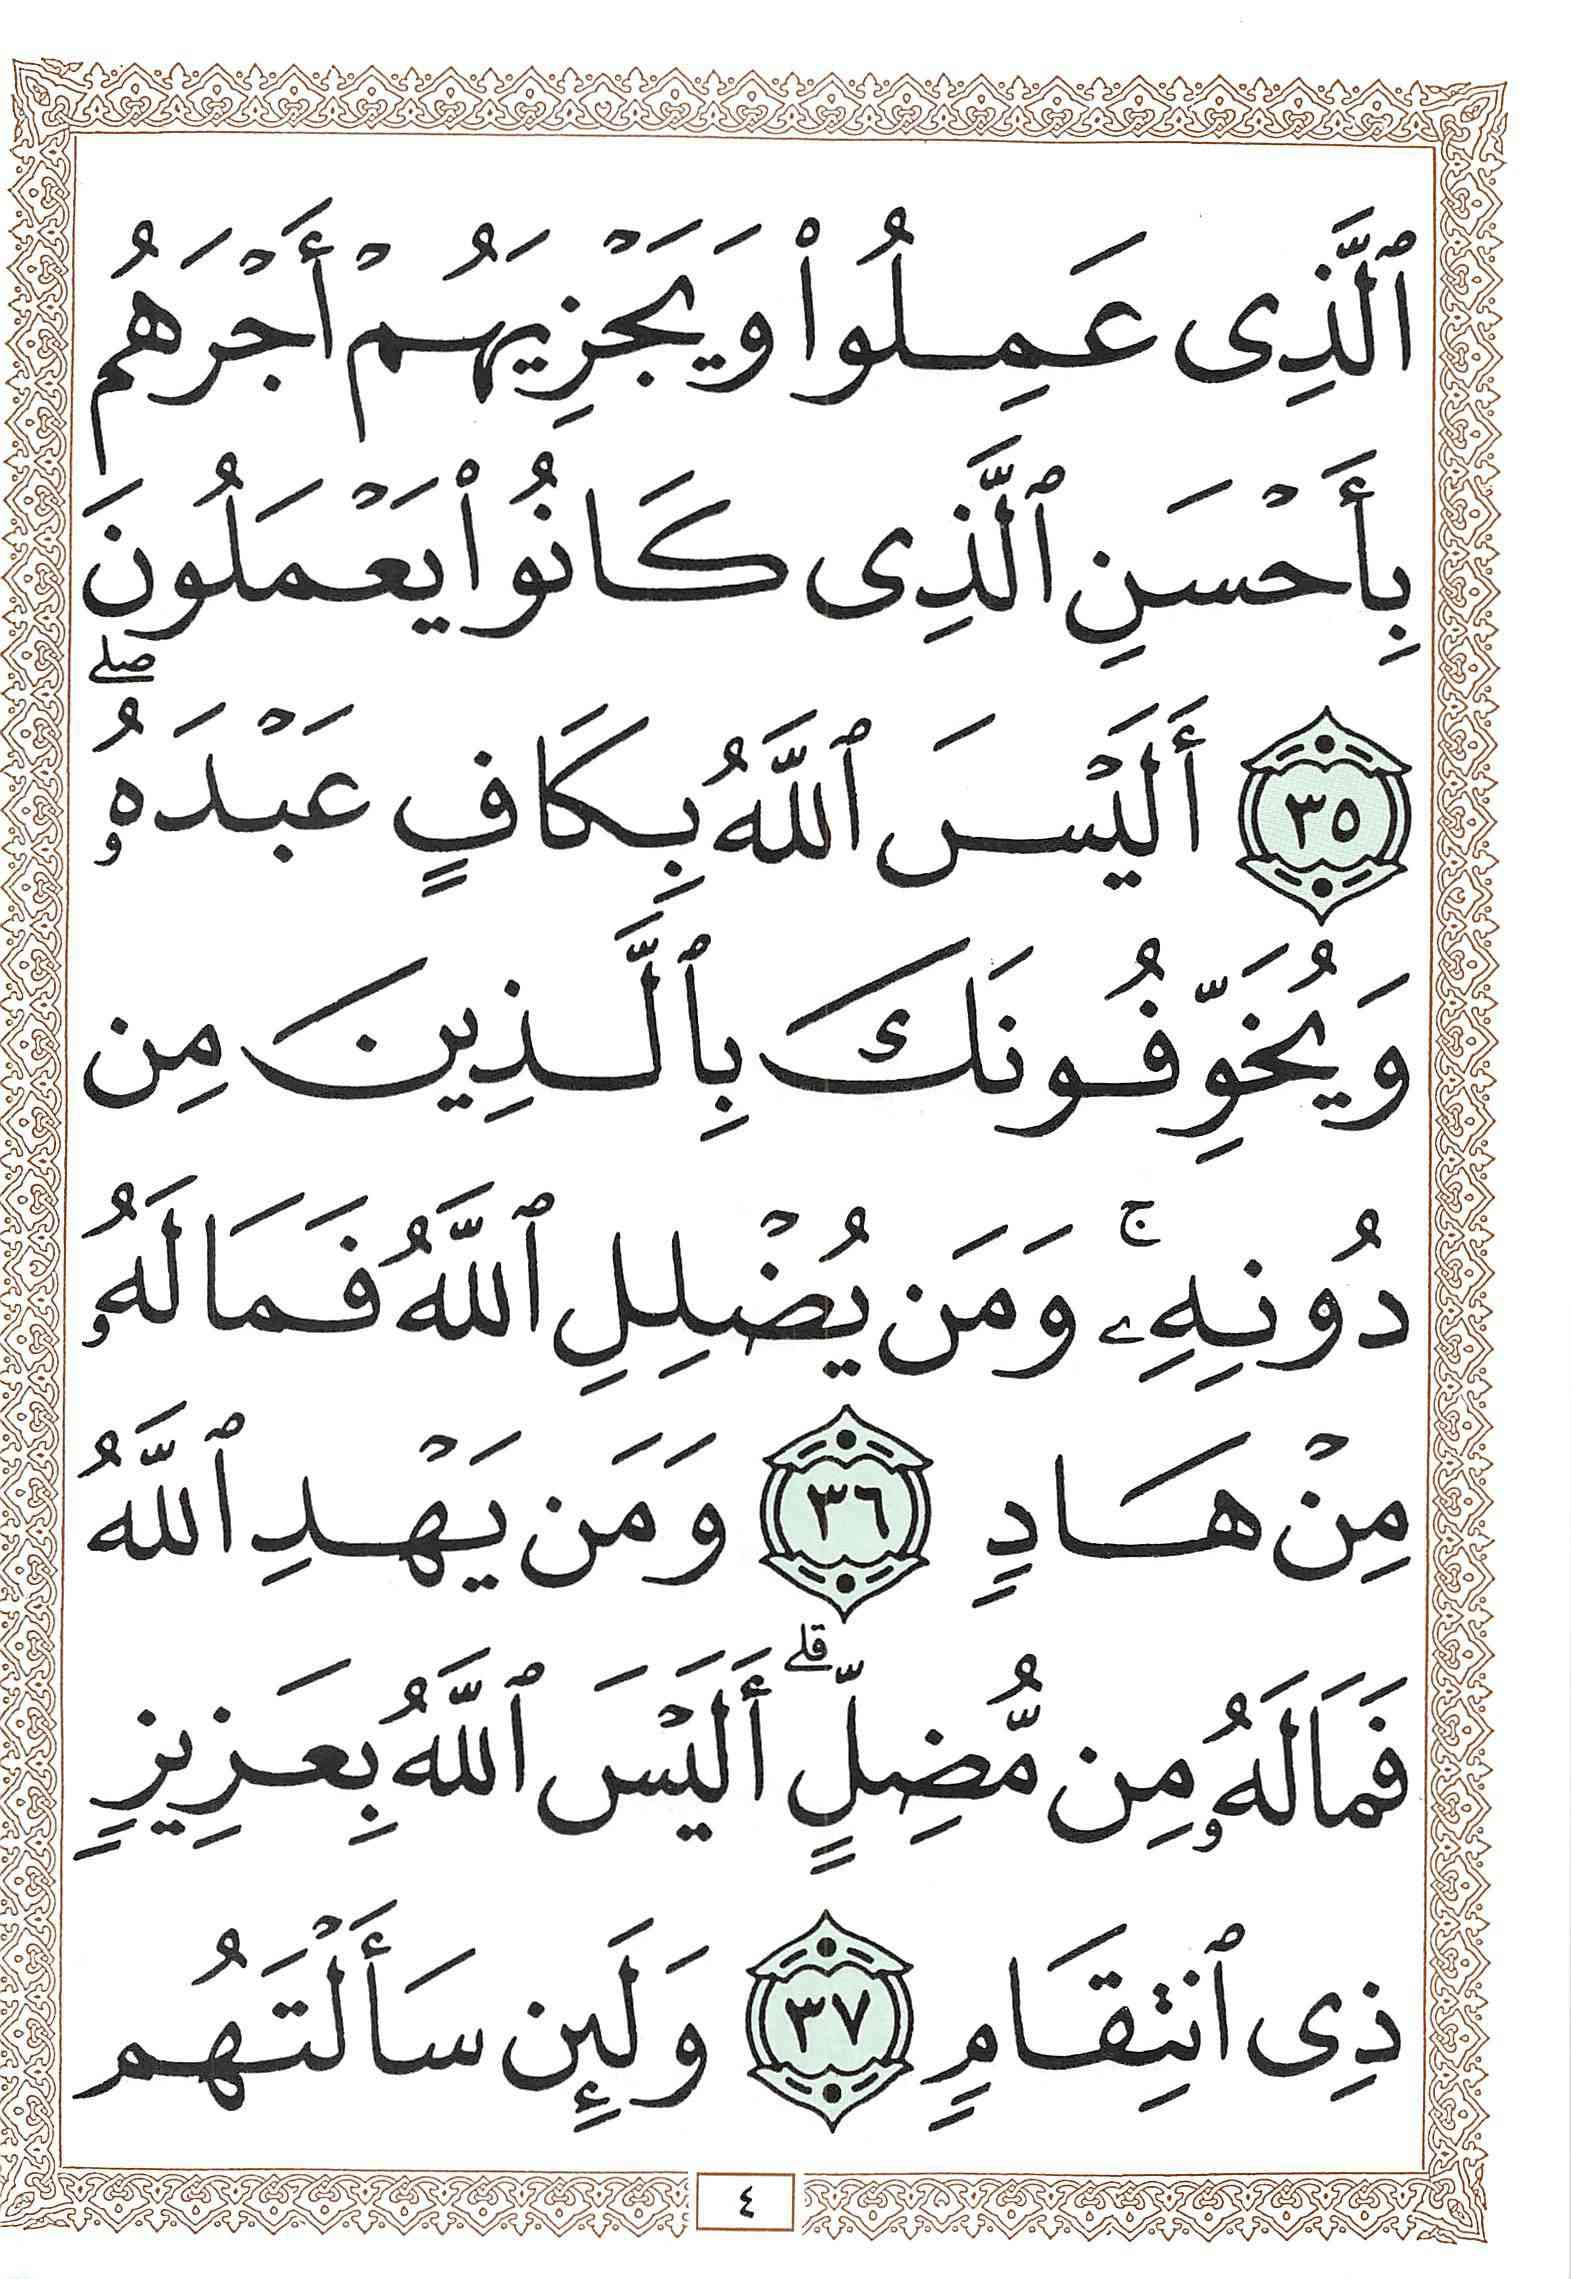 ٱلَّذِى عَمِلُوا۟ وَيَجْزِيَهُمْ أَجْرَهُم
بِأَحْسَنِ ٱلَّذِى كَانُوا۟ يَعْمَلُونَ
٣٥ أَلَيْسَ ٱللَّهُ بِكَافٍ عَبْدَهُۥ ۖ
وَيُخَوِّفُونَكَ بِٱلَّذِينَ مِن
دُونِهِۦ ۚ وَمَن يُضْلِلِ ٱللَّهُ فَمَا لَهُۥ
مِنْ هَادٍ ٣٦ وَمَن يَهْدِ ٱللَّهُ
فَمَا لَهُۥ مِن مُّضِلٍّ ۗ أَلَيْسَ ٱللَّهُ بِعَزِيزٍ
ذِى ٱنتِقَامٍ ٣٧ وَلَئِن سَأَلْتَهُم
٤